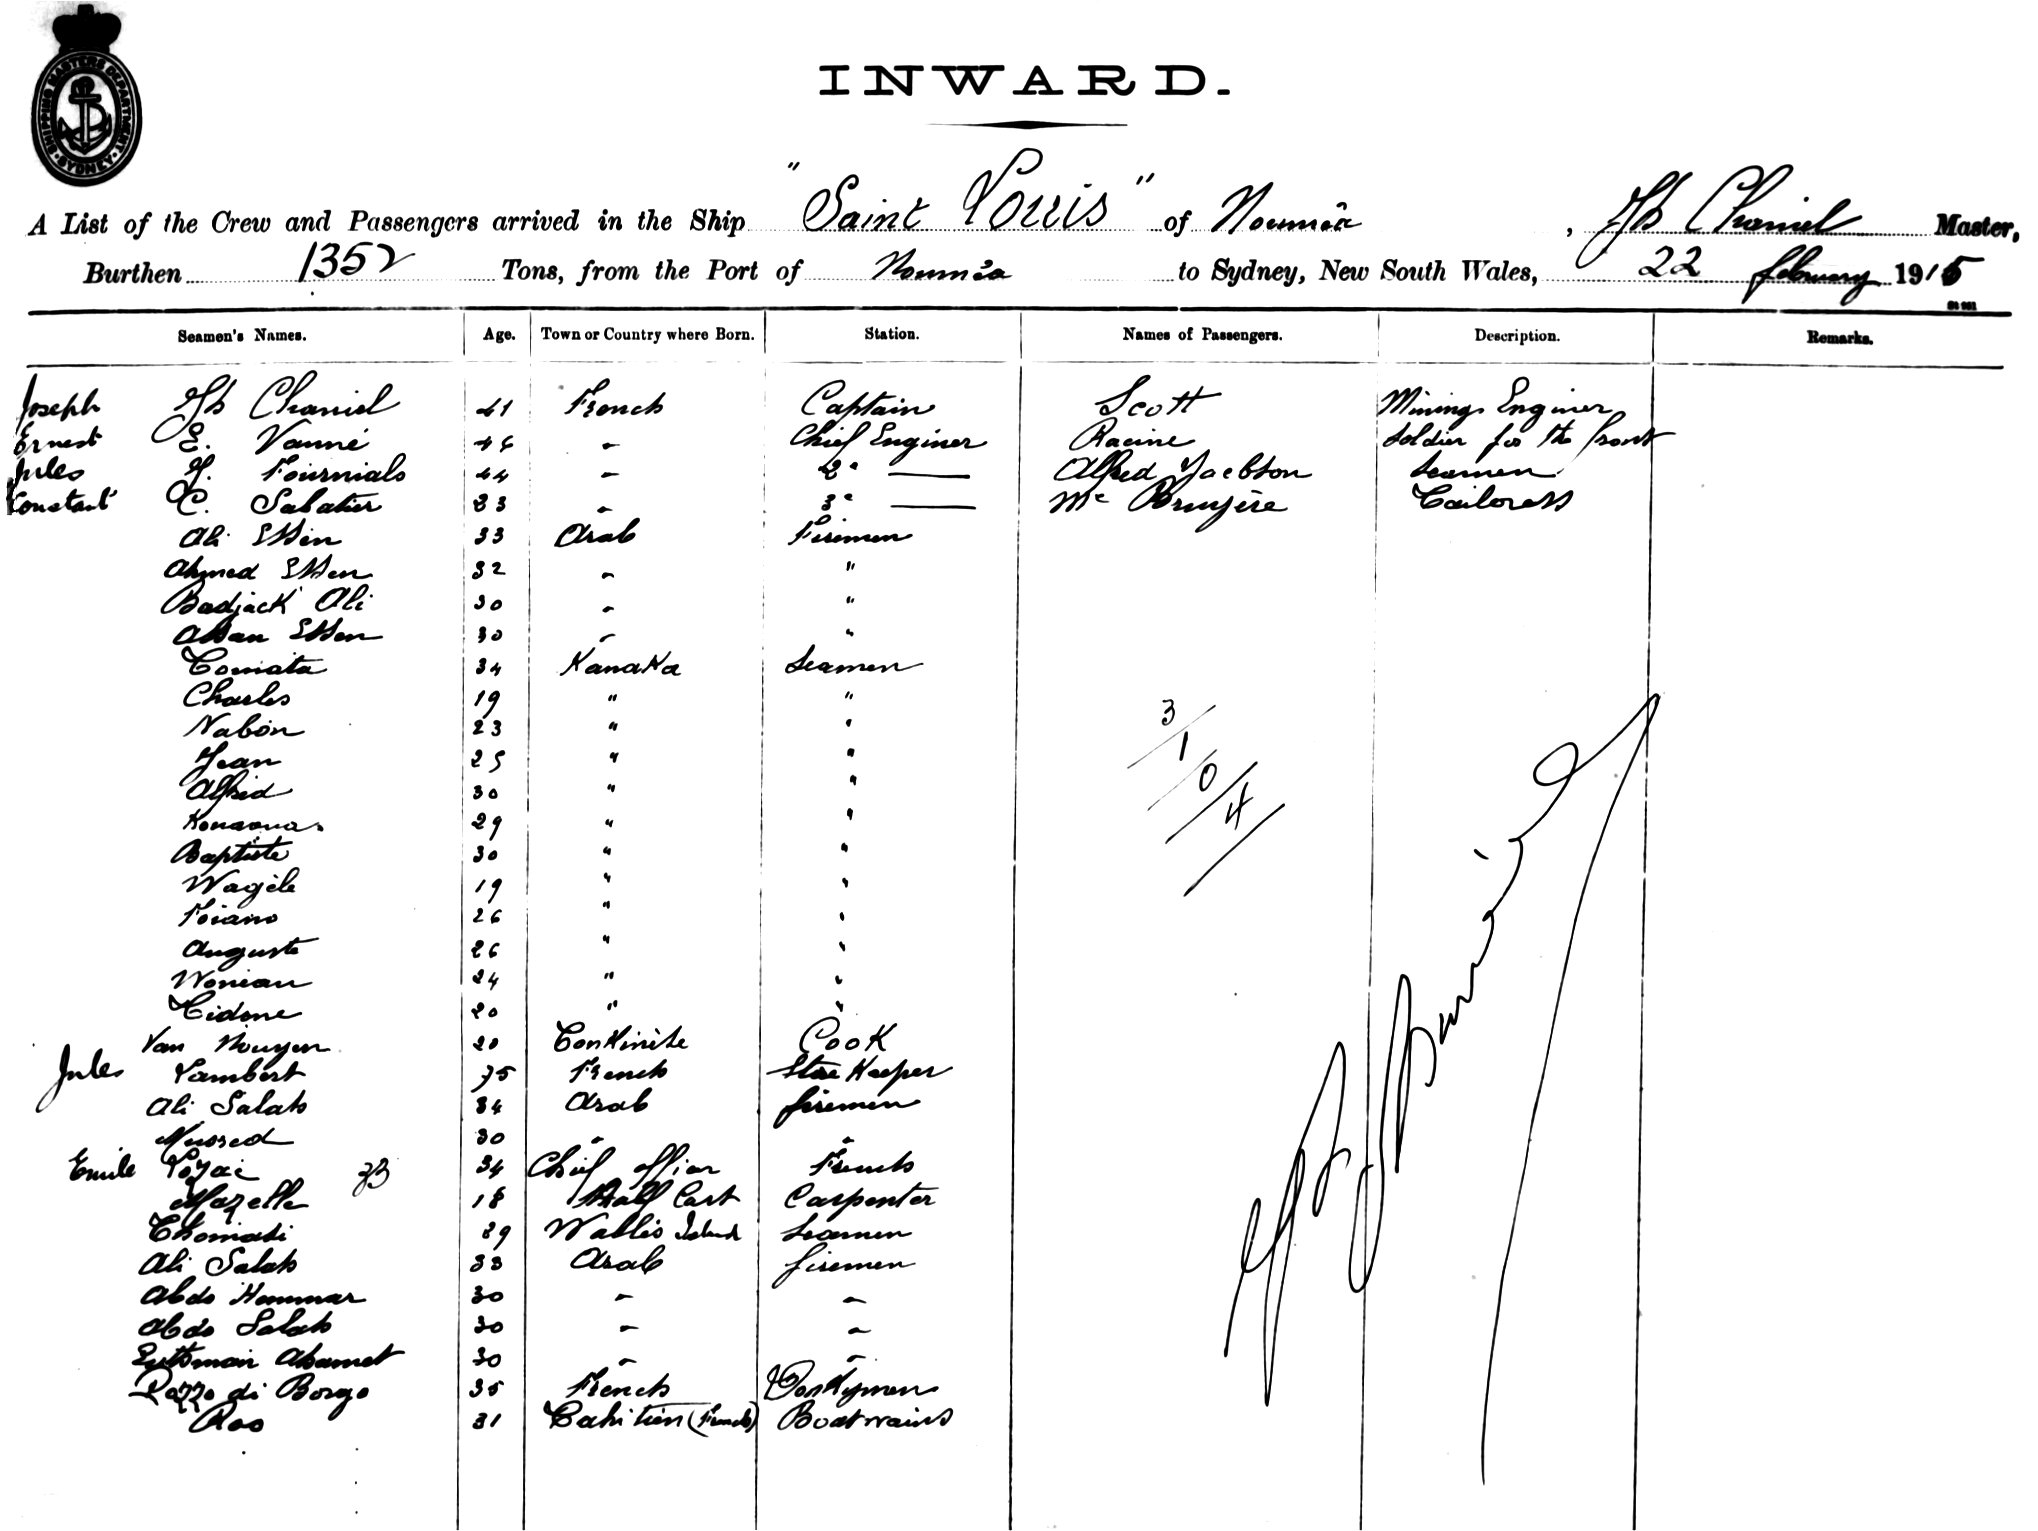 SHIPPING MASTERS DEPARTMENT SYDNEY
INWARD.
A List of the Crew and Passengers arrived in the Ship "Saint Louis" of Nouméa, Jh Chaniel Master,
Burthen 1352 Tons, from the Port of Nouméa to Sydney, New South Wales, 22 february 1915
St 961
Seamen's Names. Age. Town or Country where Born. Station. Names of Passengers. Description. Remarks.
Joseph Jh Chaniel 41 French Captain Scott Mining Enginer
Ernest E. Vanné 46 " Chief Enginer Racine Soldier for the front
Jules J. Fournials 44 " 2e — Alfred Jacbson Seamen
Constant C. Sabatier 23 " 3e — Me Bruyère Tailoress
Ali Essen 33 Arab Firemen
Ahmed Essen 32 " "
Badjack Ali 30 " "
Assan Essen 30 " "
Tomata 34 Kanaka Seamen
Charles 19 " "
Nabon 23 " "
Jean 25 " "
Alfred 30 " "
29 " "
Baptiste 30 " "
Wagèle 19 " "
Toiano 26 " "
Auguste 26 " "
Wonean 24 " "
Tidone 20 " "
Van Nouyen 20 Tonkinite Cook
Jules Lambert 75 French Store Keeper
Ali Salah 34 Arab firemen
Mussed 30 " "
Emile Lozac 34 Chief officer French
Mazelle 18 Half Cast Carpenter
Thomati 39 Wallis Island Seamen
Ali Salah 33 Arab firemen
Abdo Hommar 30 " "
Abdo Salah 30 " "
Euthman Ahamet 30 " "
Pozzo di Borgo 35 French Donkymen
Roo 31 Tahitien (French) Boatswains
3/1/0/4
Jh Chaniel